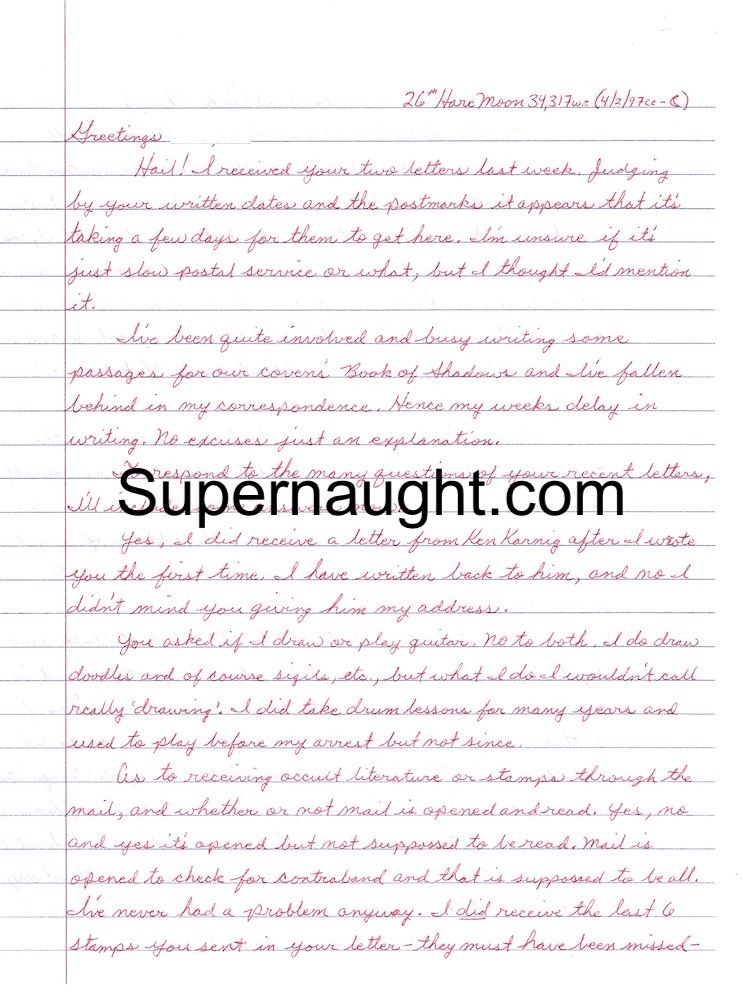 26th Hare Moon 34,317 (4/2/97ce - ☾)
Greetings
Hail! I received your two letters last week. Judging
by your written dates and the postmarks it appears that it's
taking a few days for them to get here. I'm unsure if it's
just slow postal service or what, but I thought I'd mention
it.
I've been quite involved and busy writing some
passages for our coven's Book of Shadows and I've fallen
behind in my correspondence. Hence my weeks delay in
writing. No excuses just an explanation.
To respond to the many questions of your recent letters,
I'll include some answers now.
Supernaught.com
Yes, I did receive a letter from Ken Karnig after I wrote
you the first time. I have written back to him, and no I
didn't mind you giving him my address.
You asked if I draw or play guitar. No to both. I do draw
doodles and of course sigils, etc., but what I do I wouldn't call
really 'drawing'. I did take drum lessons for many years and
used to play before my arrest but not since.
As to receiving occult literature or stamps through the
mail, and whether or not mail is opened and read. Yes, no
and yes it's opened but not suppossed to be read. Mail is
opened to check for contraband and that is suppossed to be all.
I've never had a problem anyway. I did receive the last 6
stamps you sent in your letter - they must have been missed -